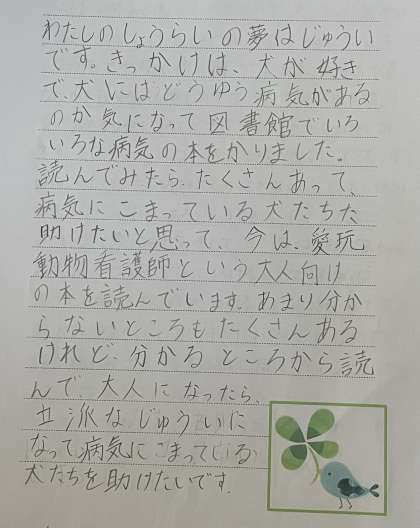 わたしのしょうらいの夢はじゅうい
です。きっかけは、犬が好き
で、犬にはどうゆう病気がある
のか気になって図書館でいろ
いろな病気の本をかりました。
読んでみたら、たくさんあって、
病気にこまっている犬たちた
助けたいと思って、今は、愛玩
動物看護師という大人向け
の本を読んでいます。あまり分か
らないところもたくさんある
けれど、分かるところから読
んで、大人になったら、
立派なじゅういに
なって病気にこまっている
犬たちを助けたいです。